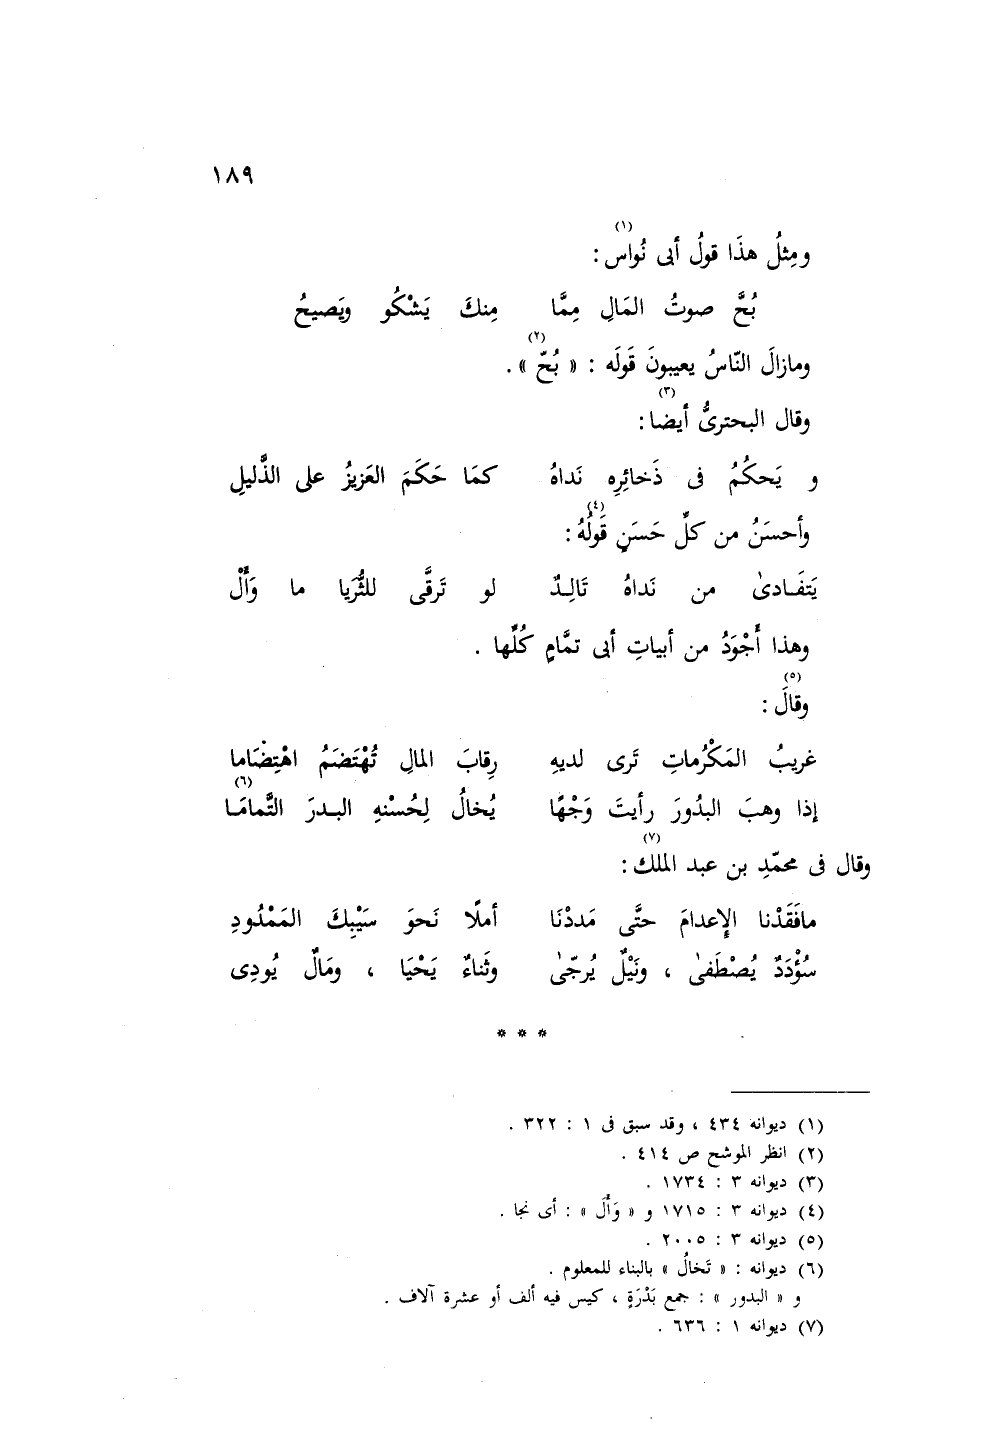 ١٨٩
ومِثلُ هذَا قولُ أبى نُواس(١) :
بُحَّ صوتُ المَالِ مِمَّا مِنكَ يَشْكُو ويَصيحُ
ومازالَ النّاسُ يعيبونَ قَولَه : « بُحّ(٢) » .
وقال البحترىُّ أيضا(٣) :
و يَحكُمُ فى ذَخائِرِه نَداهُ كمَا حَكَمَ العَزيزُ على الذَّليلِ
وأحسَنُ من كلِّ حَسَنٍ قَولُهُ(٤) :
يَتفَـادىٰ من نَداهُ تَالِـدٌ لو تَرقَّى للثُّرَيا ما وَأَلْ
وهذا أَجْوَدُ من أبياتِ أبى تمَّامٍ كُلِّها .
وقالَ(٥) :
غريبُ المَكْرُماتِ تَرى لديهِ رِقابَ المالِ تُهْتَضَمُ اهْتِضَاما
إذا وهبَ البدُورَ رأيتَ وَجْهًا يُخالُ لِحُسْنهِ البـدرَ التَّمامَـا(٦)
وقال فى محمّدِ بن عبد الملك(٧) :
مافَقَدْنا الإِعدامَ حتَّى مَددْنَا أملًا نَحوَ سَيْبِكَ المَمْدُودِ
سُؤْدَدٌ يُصْطَفىٰ ، ونَيْلٌ يُرجّىٰ وثَناءٌ يَحْيَا ، ومَالٌ يُودِى
* * *
(١) ديوانه ٤٣٤ ، وقد سبق فى ١ : ٣٢٢ .
(٢) انظر الموشح ص ٤١٤ .
(٣) ديوانه ٣ : ١٧٣٤ .
(٤) ديوانه ٣ : ١٧١٥ و « وَأَلَ » : أى نجا .
(٥) ديوانه ٣ : ٢٠٠٥ .
(٦) ديوانه : « تَخالُ » بالبناء للمعلوم .
و « البدور » : جمع بَدْرَةٍ ، كيس فيه ألف أو عشرة آلاف .
(٧) ديوانه ١ : ٦٣٦ .